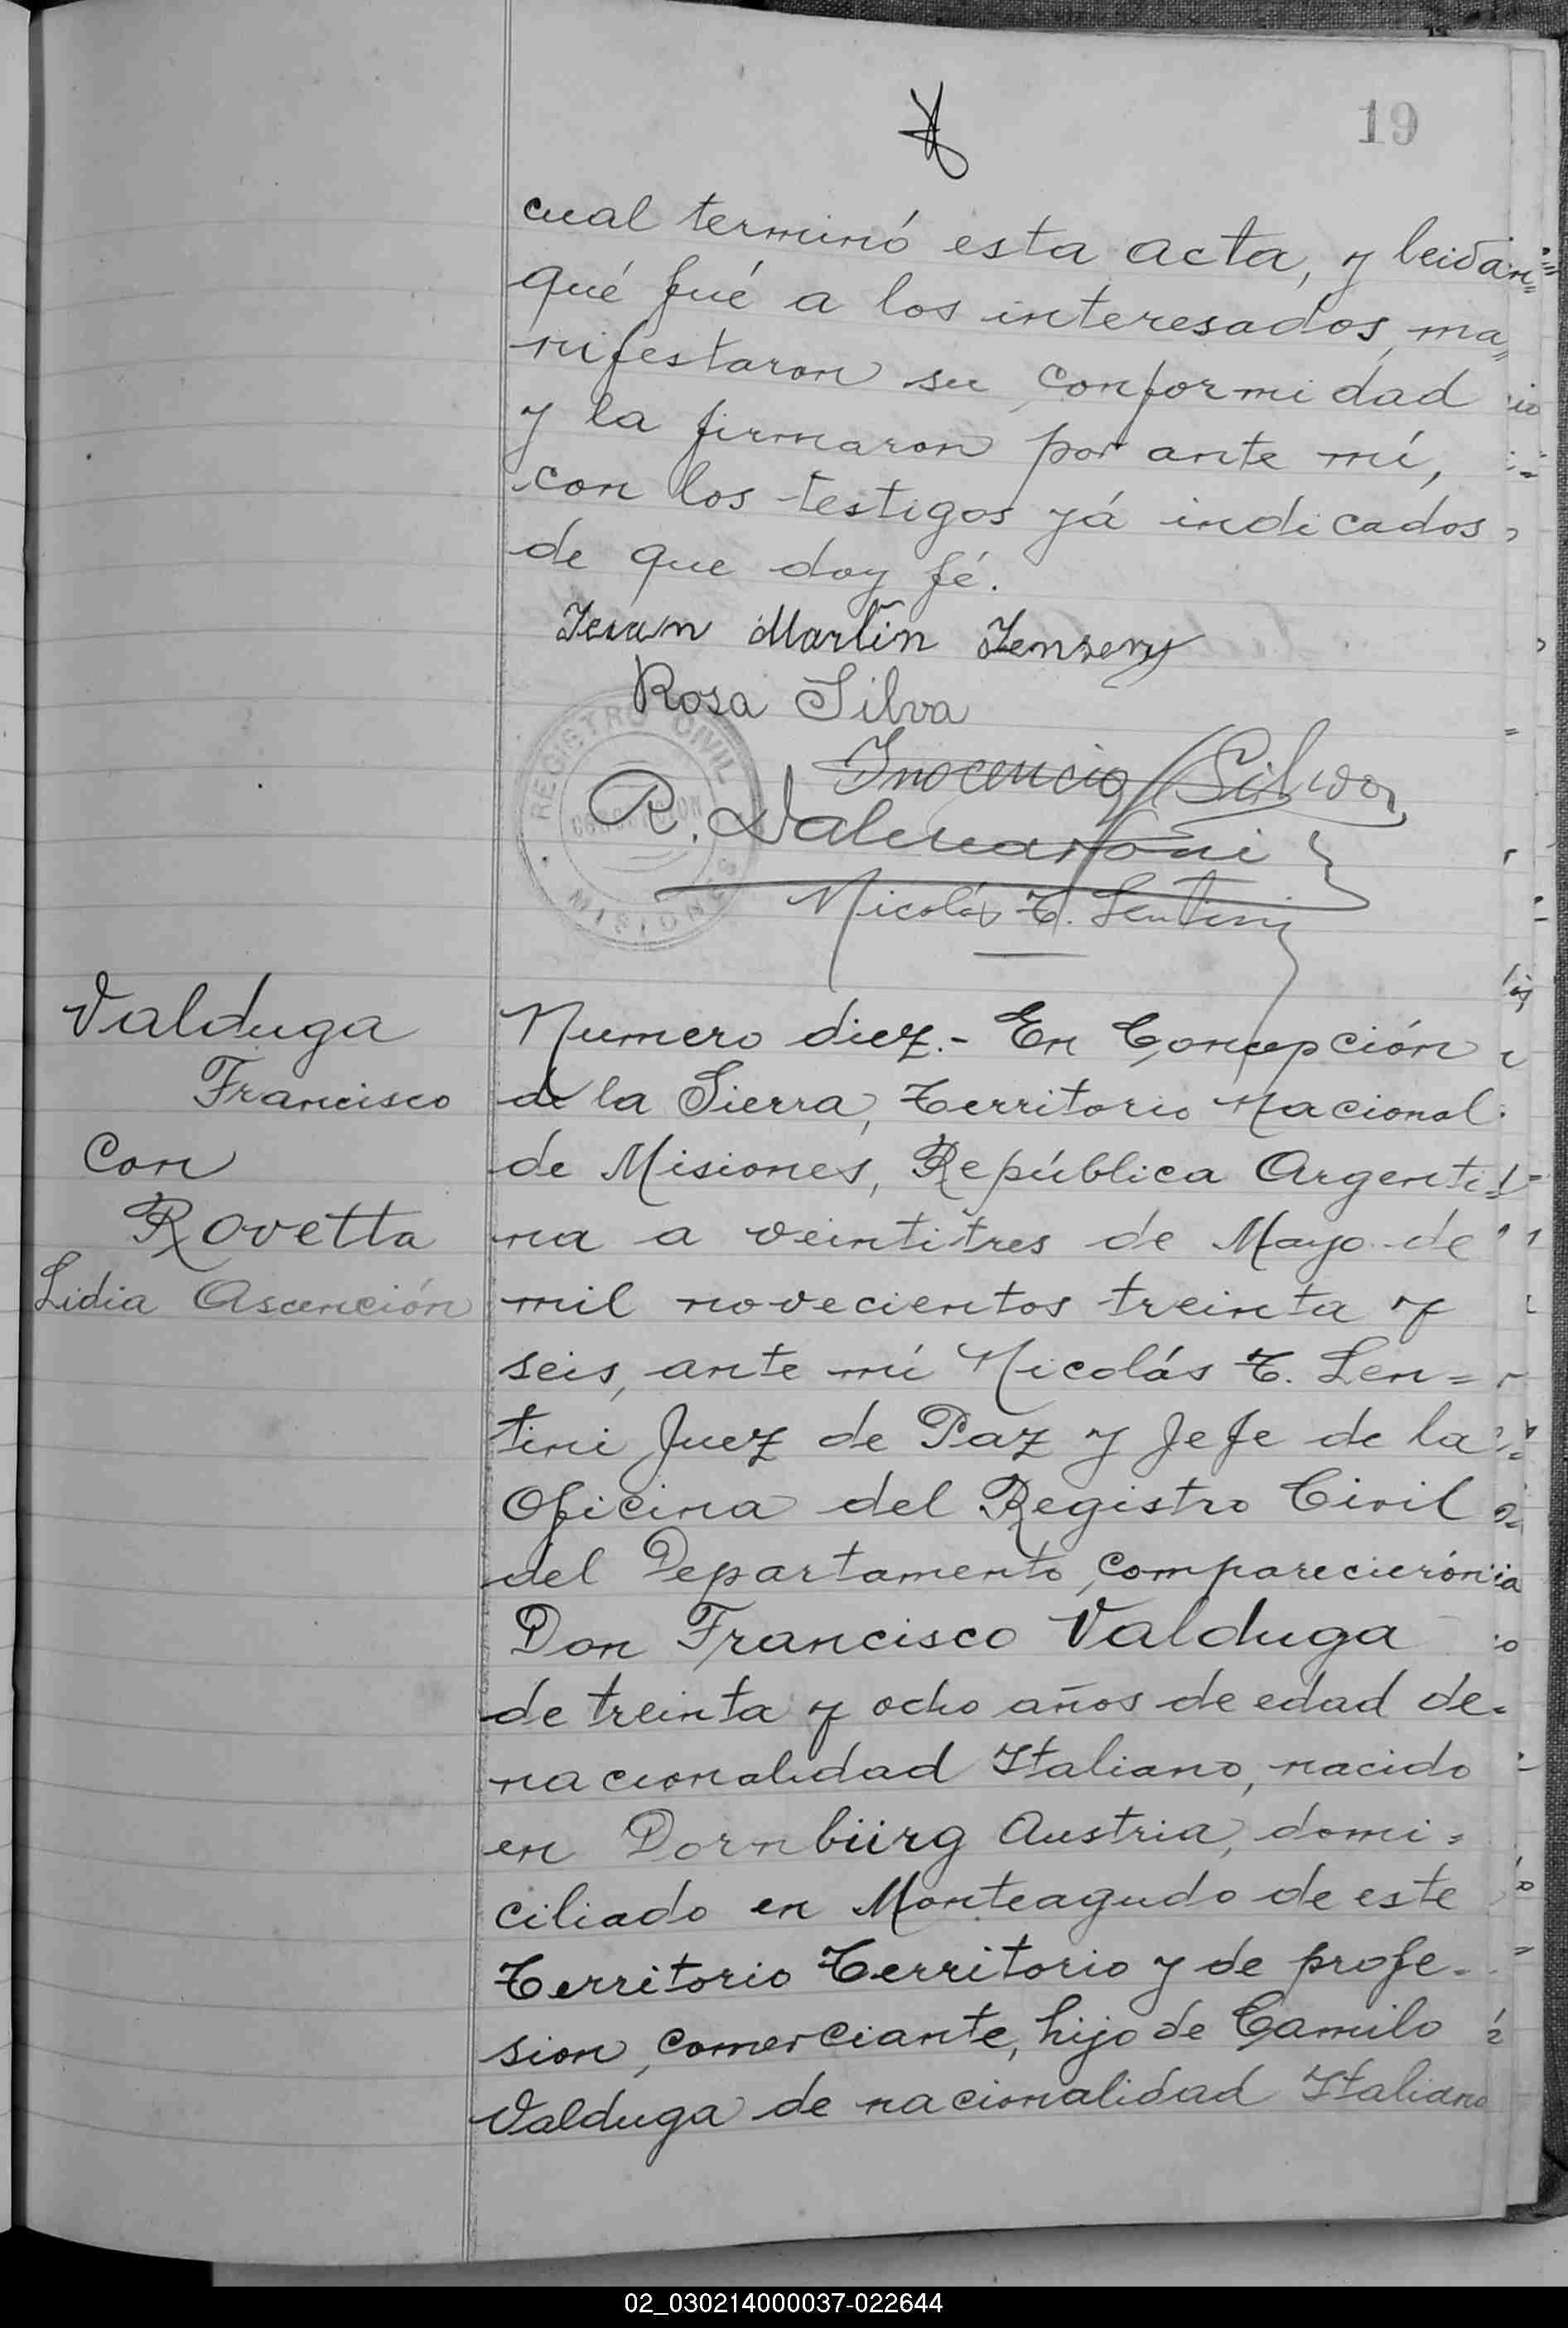 19
cual terminó esta acta, y leida
qué fué a los interesados, ma=
nifestaron su conformidad
y la firmaron por ante mí,
con los testigos yá indicados
de que doy fé.
Martin
Rosa Silva
Inocencio Silva
R.
Nicolás T. Lentini
REGISTRO CIVIL
CONCEPCION
MISIONES
Valduga
Francisco
Con
Rovetta
Lidia Ascención
Numero diez.- En Concepción
de la Sierra, Territorio Nacional
de Misiones, República Argenti=
na a veintitres de Mayo de
mil novecientos treinta y
seis, ante mí Nicolás T. Len=
tini Juez de Paz y Jefe de la
Oficina del Registro Civil
del Departamento, comparecierón
Don Francisco Valduga
de treinta y ocho años de edad de=
nacionalidad Italiano, nacido
en Dornbürg Austria, domi=
ciliado en Monteagudo de este
Territorio Territorio y de profe=
sion, comerciante, hijo de Camilo
Valduga de nacionalidad Italiano
02_030214000037-022644